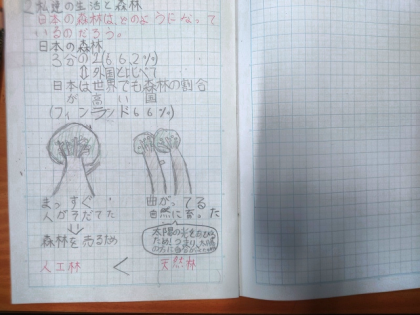 ②私達の生活と森林
日本の森林は、どのようになって
いるのだろう。
日本の森林
3分の2(66.2%)
⇕外国とくらべて
日本は世界でも森林の割合
が高い国
(フィンランド66%)
まっすぐ
人がそだてた
↓
森林を売るため
人工林
<
曲がってる
自然に育った
太陽の光を
ため
天然林